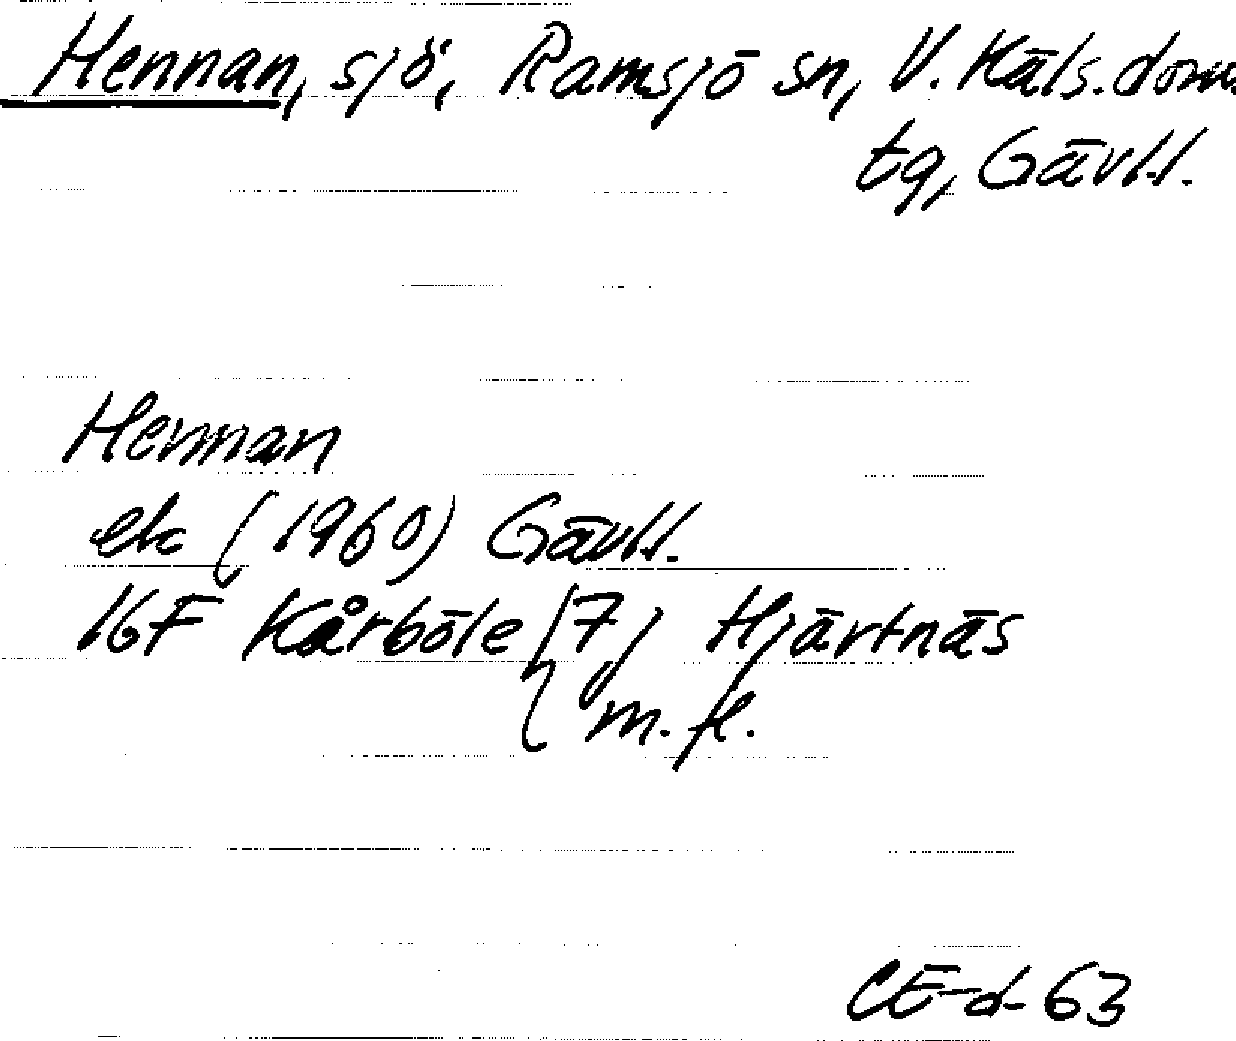 Hennan, sjö, Ramsjö sn, V. Häls. doms.
tg, Gävl.l.
Hennan
ek (1960) Gävl.l.
16F Kårböle (7) Hjärtnäs
m.fl.
CE-d-63